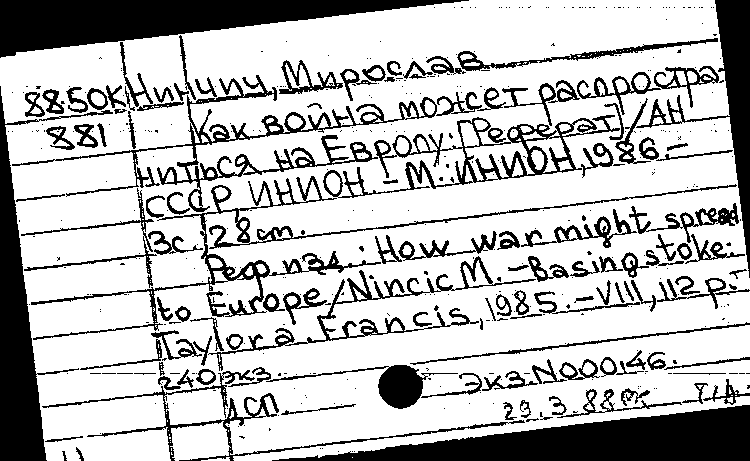 8850К Нинчич, Мирослав
881 Как война может распростра-
ниться на Европу: [Реферат] / АН
СССР, ИНИОН. - М.: ИНИОН, 1986. -
3с.; 28 cm.
Реф. изд.: How war might spread
to Europe / Nincic M. - Basingstoke:
Taylor a. Francis, 1985. - VIII, 112 p. -
240 экз.
ДСП. Экз. N000146.
29.3.88